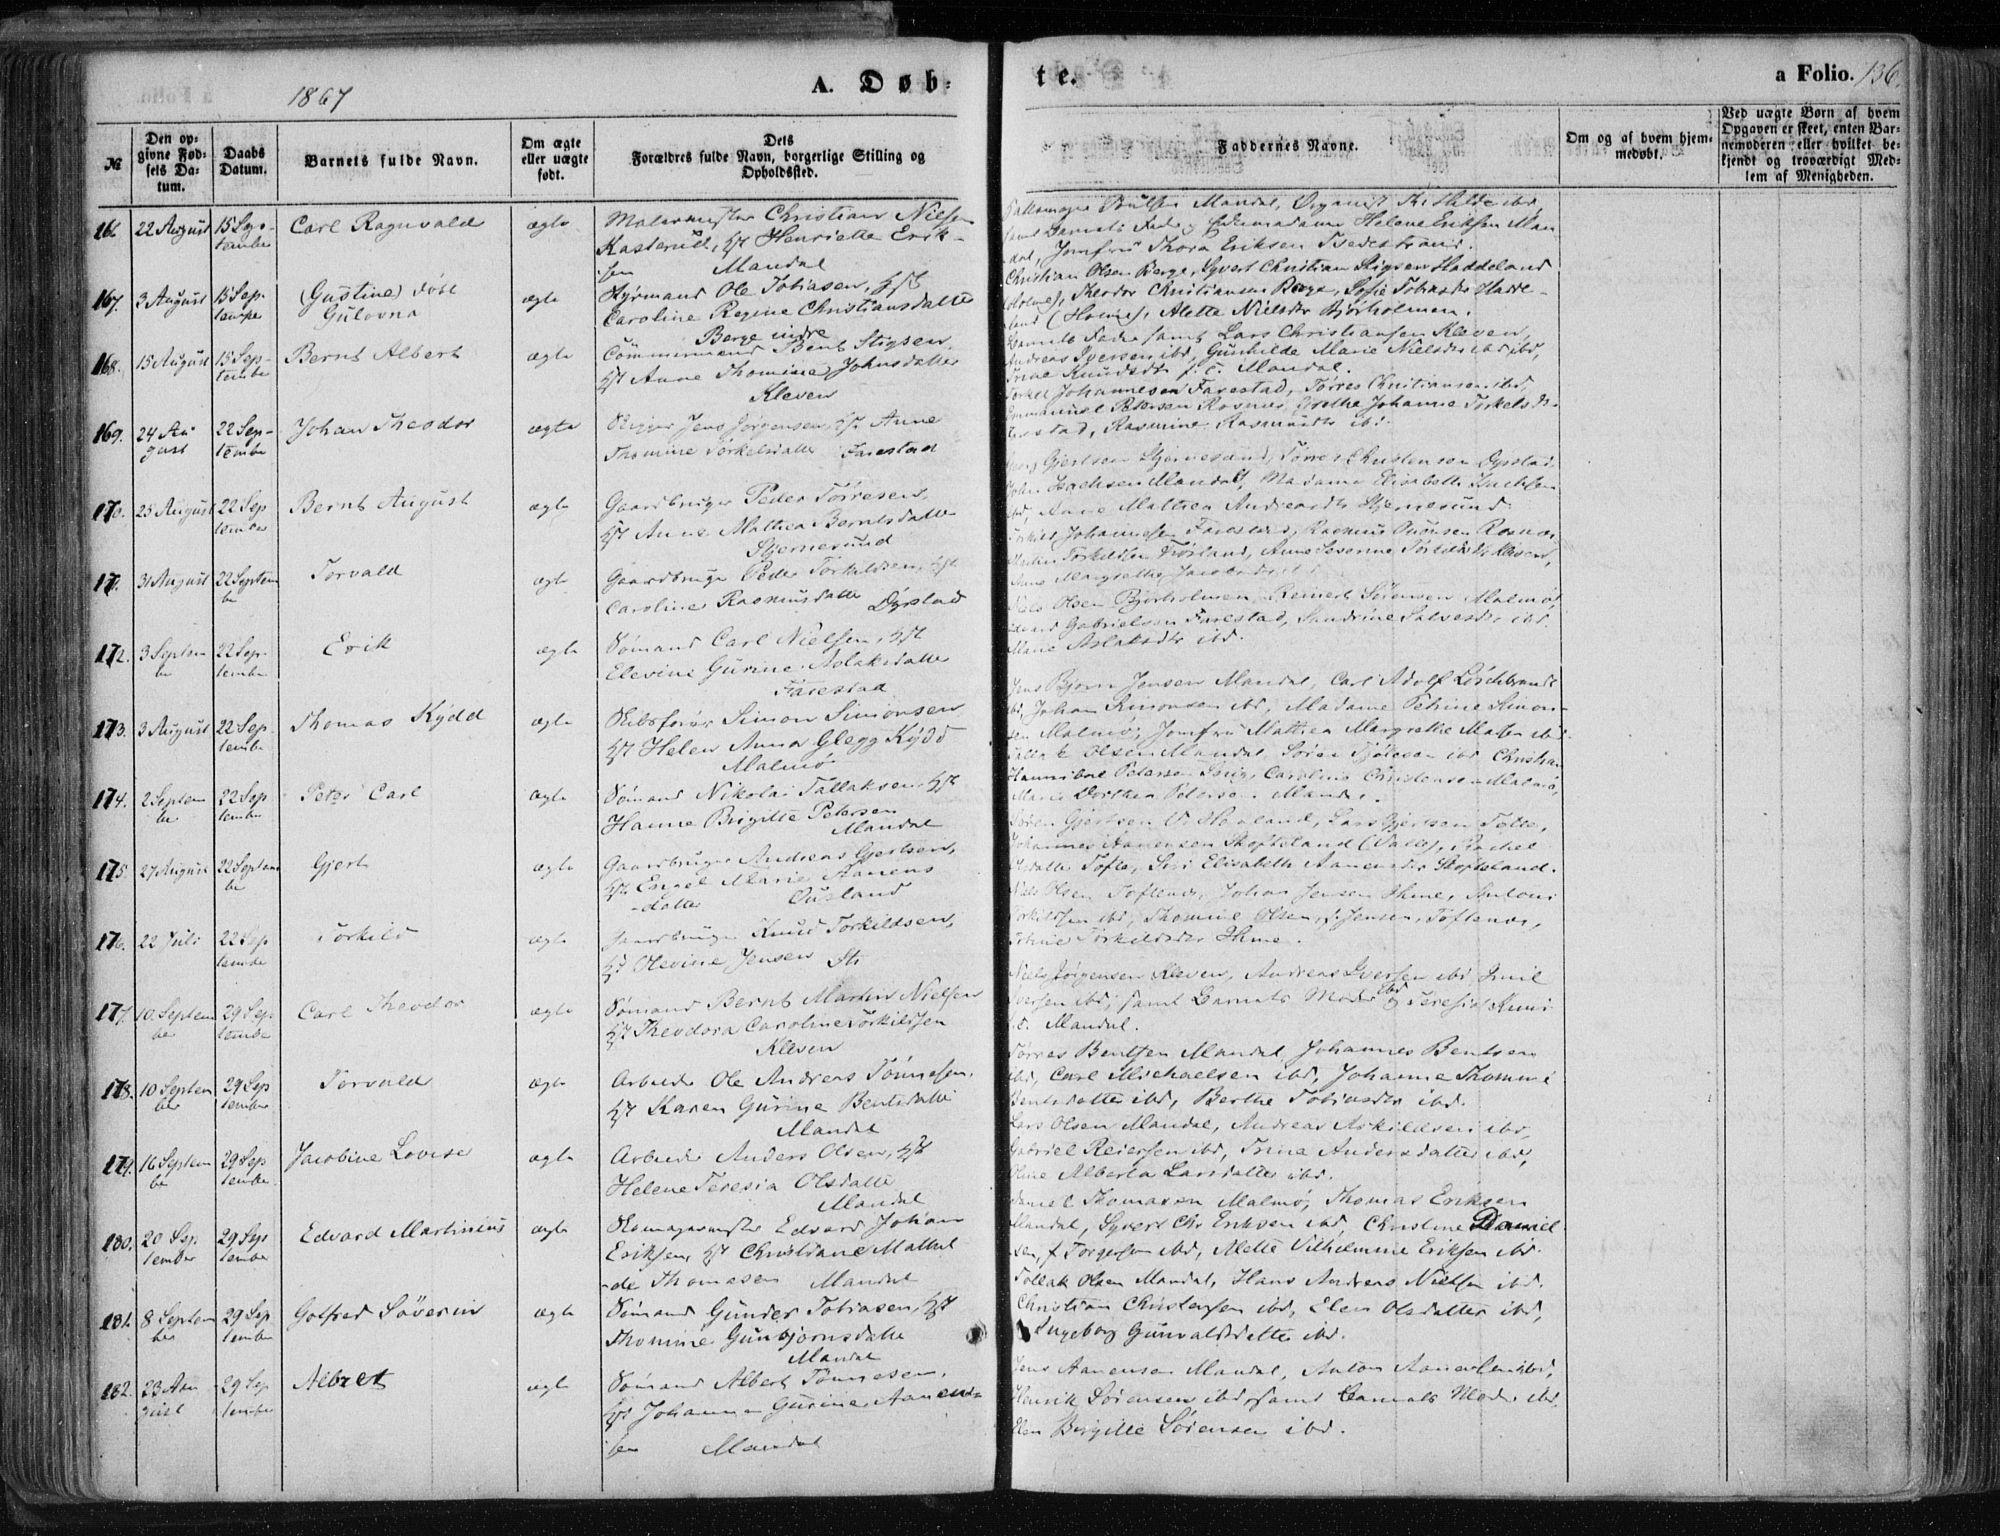 1867
A. Døb=
te.
a Folio. 136.
№
Den op=
givne Fød=
sels Da=
tum.
Daabs
Datum.
Barnets fulde Navn.
Om ægte
eller uægte
født.
Dets
Forældres fulde Navn, borgerlige Stilling og
Opholdssted.
Faddernes Navne.
Om og af hvem hjem=
medøbt.
Ved uægte Børn af hvem
Opgaven er skeet, enten Bar=
nemoderen eller hvilket be=
kjendt og troværdigt Med=
lem af Menigheden.
166. 22 August 15 Sep-
tembe
Carl Ragnvald
ægte
Malermester Christian Nielsen
Kasterud, Hst Henriette Erik-
sen Mandal
Mandal, Organist
Helene Eriksen Man
dal, Jomfru Thora Eriksen Tvedestrand.
167. 3 August 15 Sep-
tembe
(Gustine) døbt
Gulovna
ægte
Styrmand Ole Tobiasen, Hst
Caroline Regine Christiansdatte
Berge indre
Christian Olsen Berge, Syvert Christian Stigsen Haddeland
(Holme), Theodor Christiansen Berge, Sofie Tobiasdtr Hadde-
land (Holme), Alette Nielsdtr Bjørholmen.
168. 15 August 15 Sep-
tembe
Bernt Albert
ægte
Bent Stigsen,
Hst Anne Thomine Johnsdatte
Kleven
Barnets Fader samt Lars Christiansen Kleven,
Andreas Iversen ibd, Gunhilde Marie Nielsdtr ibd,
Trine Knudsdtr f. t. Mandal.
169. 24 Au
gust
22 Sep-
tembe
Johan Theodor
ægte
Rigger Jens Jørgensen, Hst Anne
Thomine Torkelsdatte Farestad
Torkel Johannesen Farestad, Tørres Christiansen ibd,
Emmanuel Petersen Rosnes, Grethe Johanne Torkelsdt
Farestad, Rasmine Rasmusdtr ibd.
170. 25 August 22 Sep
tember
Bernt August
ægte
Gaardbruger Peder Tørresen,
Hst Anne Mathea Berntsdatte
Stjernesund
Gjertsen Stjernesund, Tørres Christensen Dyrstad
John Isachsen Mandal, Madame Elisabeth Isachsen
ibd, Anne Mathea Andreasdtr Stjernesund.
171. 31 August 22 Septem
be
Torvald
ægte
Gaardbruge Peder Torkildsen, Hst
Caroline Rasmusdatte Dyrstad
Torkild Johannesen Farestad, Rasmus Rosnes
Torkildsen Frøsland, Anne Severine Torkildsdtr Kleven,
Anne Margrethe Jacobsdtr ibd
172. 3 Septem
be
22 Sep-
tembe
Erik
ægte
Sømand Carl Nielsen, Hst
Elevine Gurine Aslaksdatte
Farestad
Niels Olsen Bjørholmen, Reinert Sørensen Malmø,
Gabrielsen Farestad, Sandrine Salvesdtr ibd
Marie Aslaksdtr ibd.
173. 3 August 22 Sep
tembe
Thomas Kydd
ægte
Skibsfører Simon Simonsen
Hst Helen Anna Glegg Kydd
Malmø
Jens Bjørn Jensen Mandal, Carl Adolf
ibd, Johan Simonsen ibd, Madame Petrine Simon-
sen Malmø, Jomfru Mathea Margrethe
174. 2 Septem
be
22 Sep
tembe
Peter Carl
ægte
Sømand Nikolai Tallaksen, Hst
Hanne Brigitte Petersen
Mandal
Tallak Olsen Mandal, Søren ibd Christian
Hannibal Petersen Caroline Christensen Malmø,
Marie Dorthea Petersen Mandal.
175. 27 August 22 Septem
be
Gjert
ægte
Gaardbruger Andreas Gjertsen,
Hst Engel Marie Aanens
-datte Ousland
Søren Gjertsen Haaland, Lars Gjertsen Tofte,
Johannes Aanensen Skofteland (Valle), Rachel
Olsdatte Tofte, Siri Elisabeth Aanensdtr Skofteland.
176. 22 Juli 22 Sep
tembe
Torkild
ægte
Gaardbruge Knud Torkildsen,
Hst Olevine Jensen
Niels Olsen Toftenes, Johan Jensen Ihme, Antoni
Torkildsen ibd, Thomine Olsen, f. Jensen, Toftenes,
Torkildsdtr Ihme.
177. 10 Septem
be
29 Sep
tembe
Carl Theodor
ægte
Sømand Bernt Martin Nielsen
Hst Theodora Caroline Torkildsen
Kleven
Niels Jørgensen Kleven, Andreas Iversen ibd, Emil
Iversen ibd, samt Barnets Moder ibd og Teresia
f. t. Mandal.
178. 10 Septem
ber
29 Sep
tember
Torvald
ægte
Arbeide Ole Andreas Tønnesen,
Hst Karen Gurine Bentsdatte
Mandal
Tørres Bentsen Mandal, Johannes Bentsen
ibd, Carl Michaelsen ibd, Johanne Thomine
Bentsdatte ibd, Berthe Tobiasdtr ibd.
179. 16 Septem
be
29 Sep
tembe
Jacobine Lovise
ægte
Arbeide Anders Olsen, Hst
Helene Teresia Olsdatte
Mandal
Lars Olsen Mandal, Andreas Askildsen ibd,
Gabriel Reiersen ibd, Trine Andersdatte ibd,
Oline Alberta Larsdatte ibd.
180. 20 Sep
tember
29 Sep
tember
Edvard Martinius
ægte
Skomagermester Edvard Johan
Eriksen, Hst Christiane Mathil
-de Thomasen Mandal
Daniel Thomasen Malmø, Thomas Eriksen
Mandal, Syvert Chr Eriksen ibd, Christine Daniel
sen, f. Torgersen ibd, Alette Vilhelmine Eriksen ibd.
181. 8 Septem
ber
29 Sep
tembe
Golfred Søverin
ægte
Sømand Gunder Tobiasen, Hst
Thomine Gunbjørnsdatte
Mandal
Tollak Olsen Mandal, Hans Andreas Nielsen ibd.
Christian Christensen ibd, Elen Olsdatter ibd,
Ingeborg Gunvaldsdatte ibd.
182. 23 Au
gust
29 Sep
tembe
Albret
ægte
Sømand Albert Tønnesen,
Hst Johanne Gurine Aanen-
sen Mandal
Jens Aanensen Mandal, Anton Aanensen ibd,
Henrik Sørensen ibd, samt Barnets Mode ibd.
Elen Birgitte Sørensen ibd.